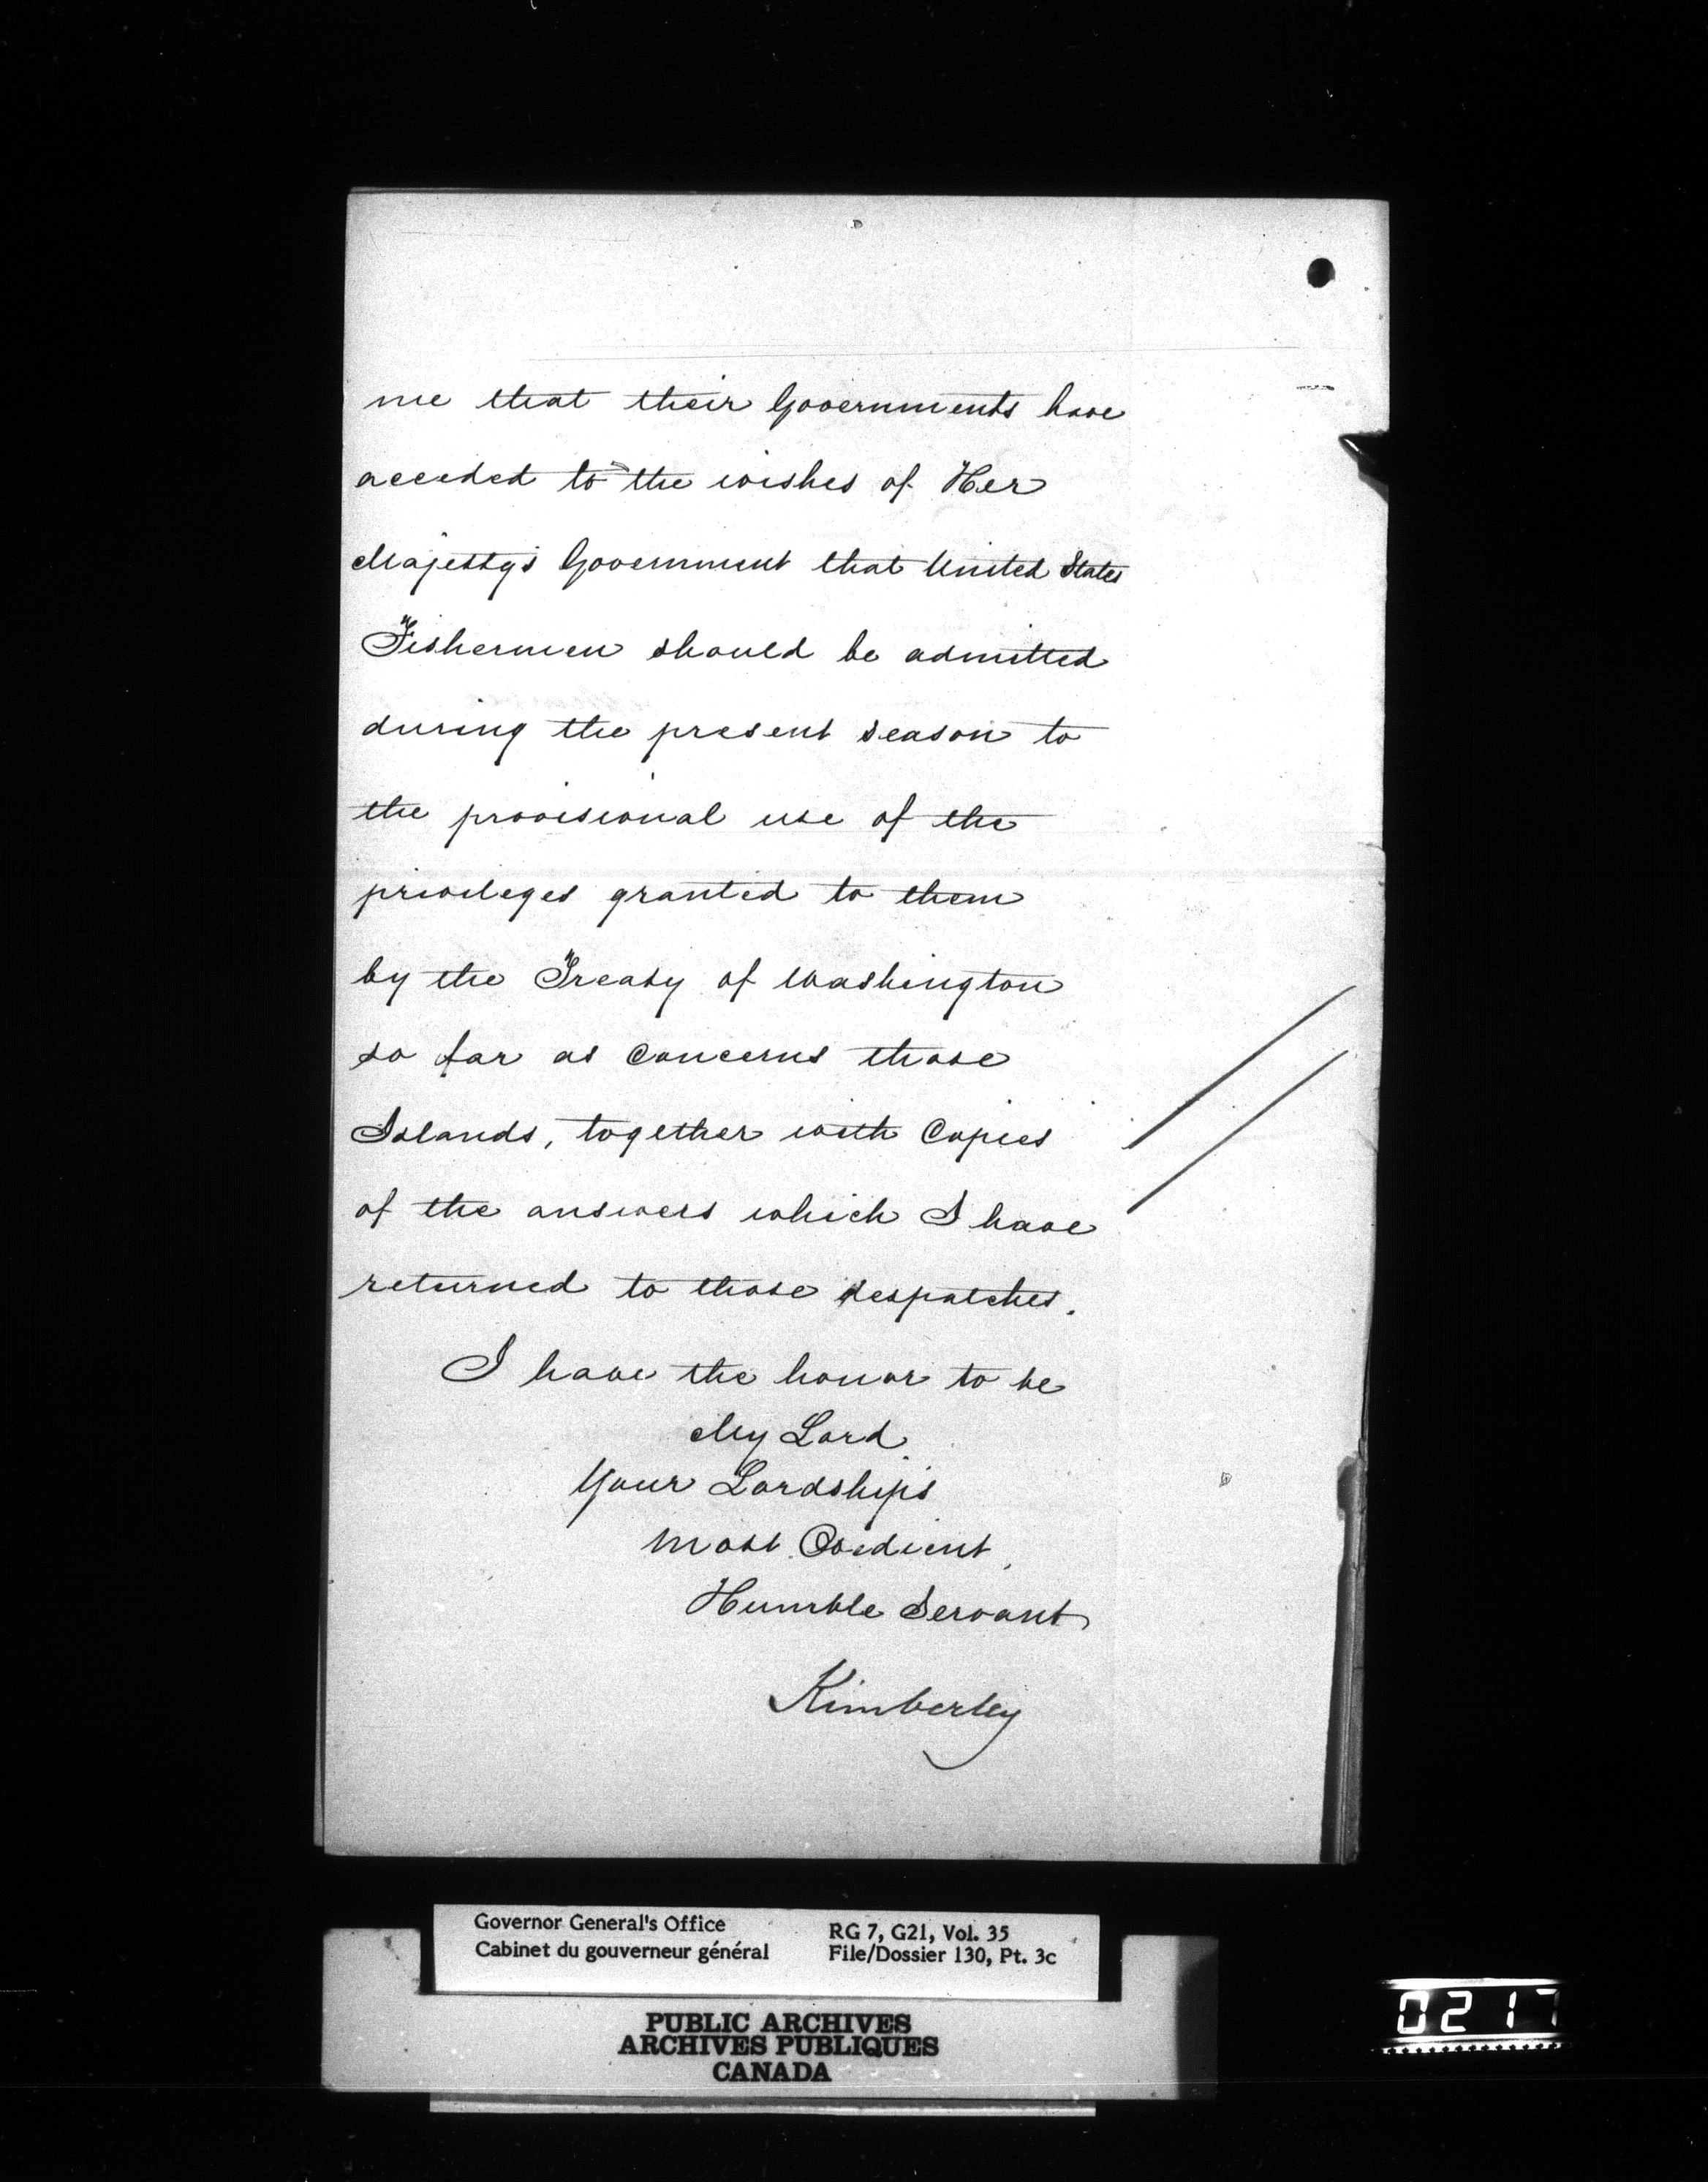 me that their Governments have
acceded to the wishes of Her
Majesty's Government that United States
Fishermen should be admitted
during the present season to
the provisional use of the
privileges granted to them
by the Treaty of Washington
so far as concerns those
Islands, together with Copies
of the answers which I have
returned to those despatches.
I have the honor to be
My Lord
Your Lordship's
Most Obedient,
Humble Servant
Kimberley
Governor General's Office
Cabinet du gouverneur général
RG 7, G21, Vol. 35
File/Dossier 130, Pt. 3c
PUBLIC ARCHIVES
ARCHIVES PUBLIQUES
CANADA
0217